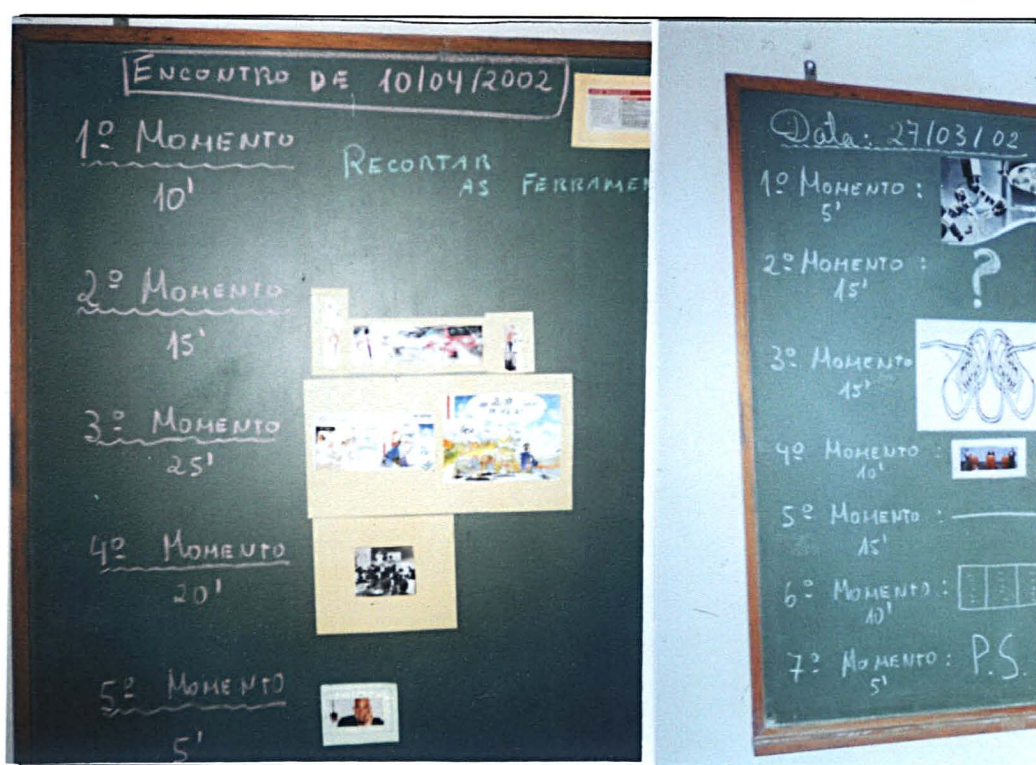 ENCONTRO DE 10/04/2002
1º MOMENTO
10'
RECORTAR
AS FERRAMEN
2º MOMENTO
15'
3º MOMENTO
25'
4º MOMENTO
20'
5º MOMENTO
5'
Data: 27/03/02
1º MOMENTO :
5'
2º MOMENTO : ?
15'
3º MOMENTO
15'
4º MOMENTO :
10'
5º MOMENTO :
15'
6º MOMENTO :
10'
7º MOMENTO : P.S.
5'